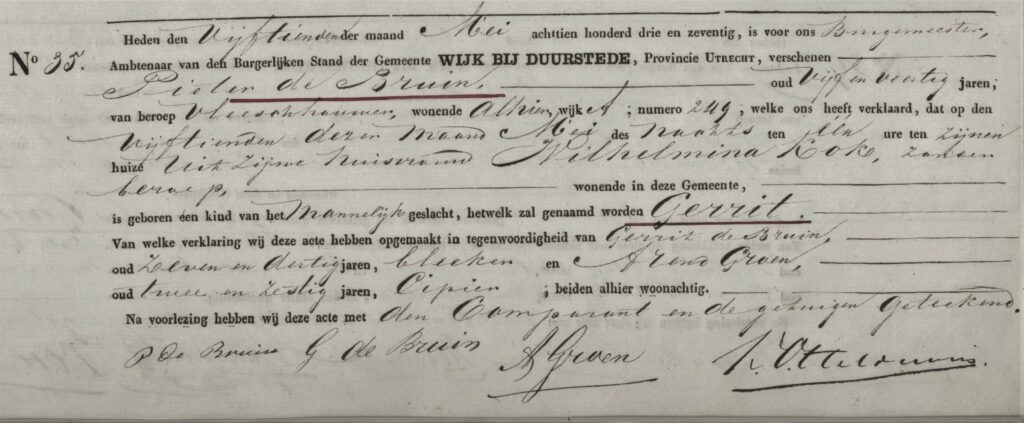 No 35.
Heden den Vijftienden der maand Mei achttien honderd drie en zeventig, is voor ons Burgemeester,
Ambtenaar van den Burgerlijken Stand der Gemeente WIJK BIJ DUURSTEDE, Provincie UTRECHT, verschenen
Pieter de Bruin, oud Vijf en veertig jaren;
van beroep Vleeschhouwer, wonende Alhier, wijk A; numero 249; welke ons heeft verklaard, dat op den
Vijftienden dezer maand Mei des nachts ten één ure ten zijnen
huize uit zijne huisvrouw Wilhelmina Kok, zonder
beroep, wonende in deze Gemeente,
is geboren een kind van het Mannelijk geslacht, hetwelk zal genaamd worden Gerrit.
Van welke verklaring wij deze acte hebben opgemaakt in tegenwoordigheid van Gerrit de Bruin,
oud Zeven en dertig jaren, bleeker en Arend Groen
oud twee en zestig jaren, Cipier; beiden alhier woonachtig.
Na voorlezing hebben wij deze acte met den Comparant en de getuigen geteekend.
P de Bruin G de Bruin A Groen